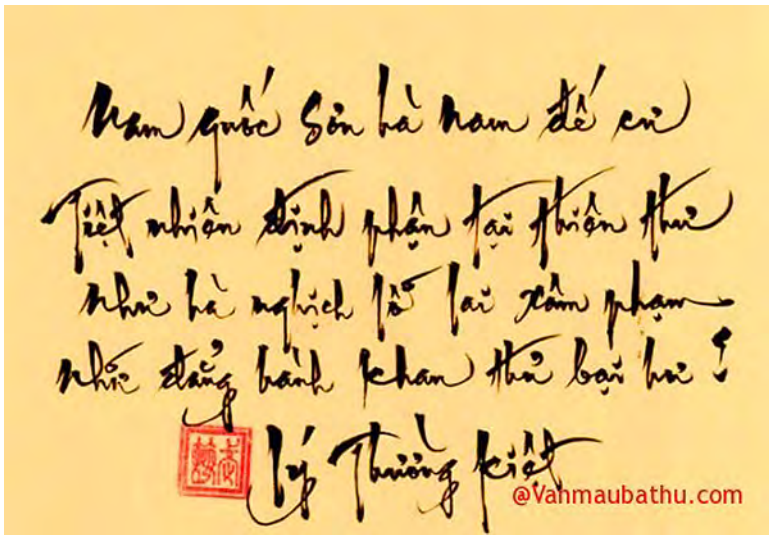 Nam quốc Sơn hà nam đế cư
Tiệt nhiên định phận tại thiên thư
Như hà nghịch lỗ lai xâm phạm
Nhữ đẳng hành khan thủ bại hư !
Lý Thường Kiệt
@Vanmaubathu.com